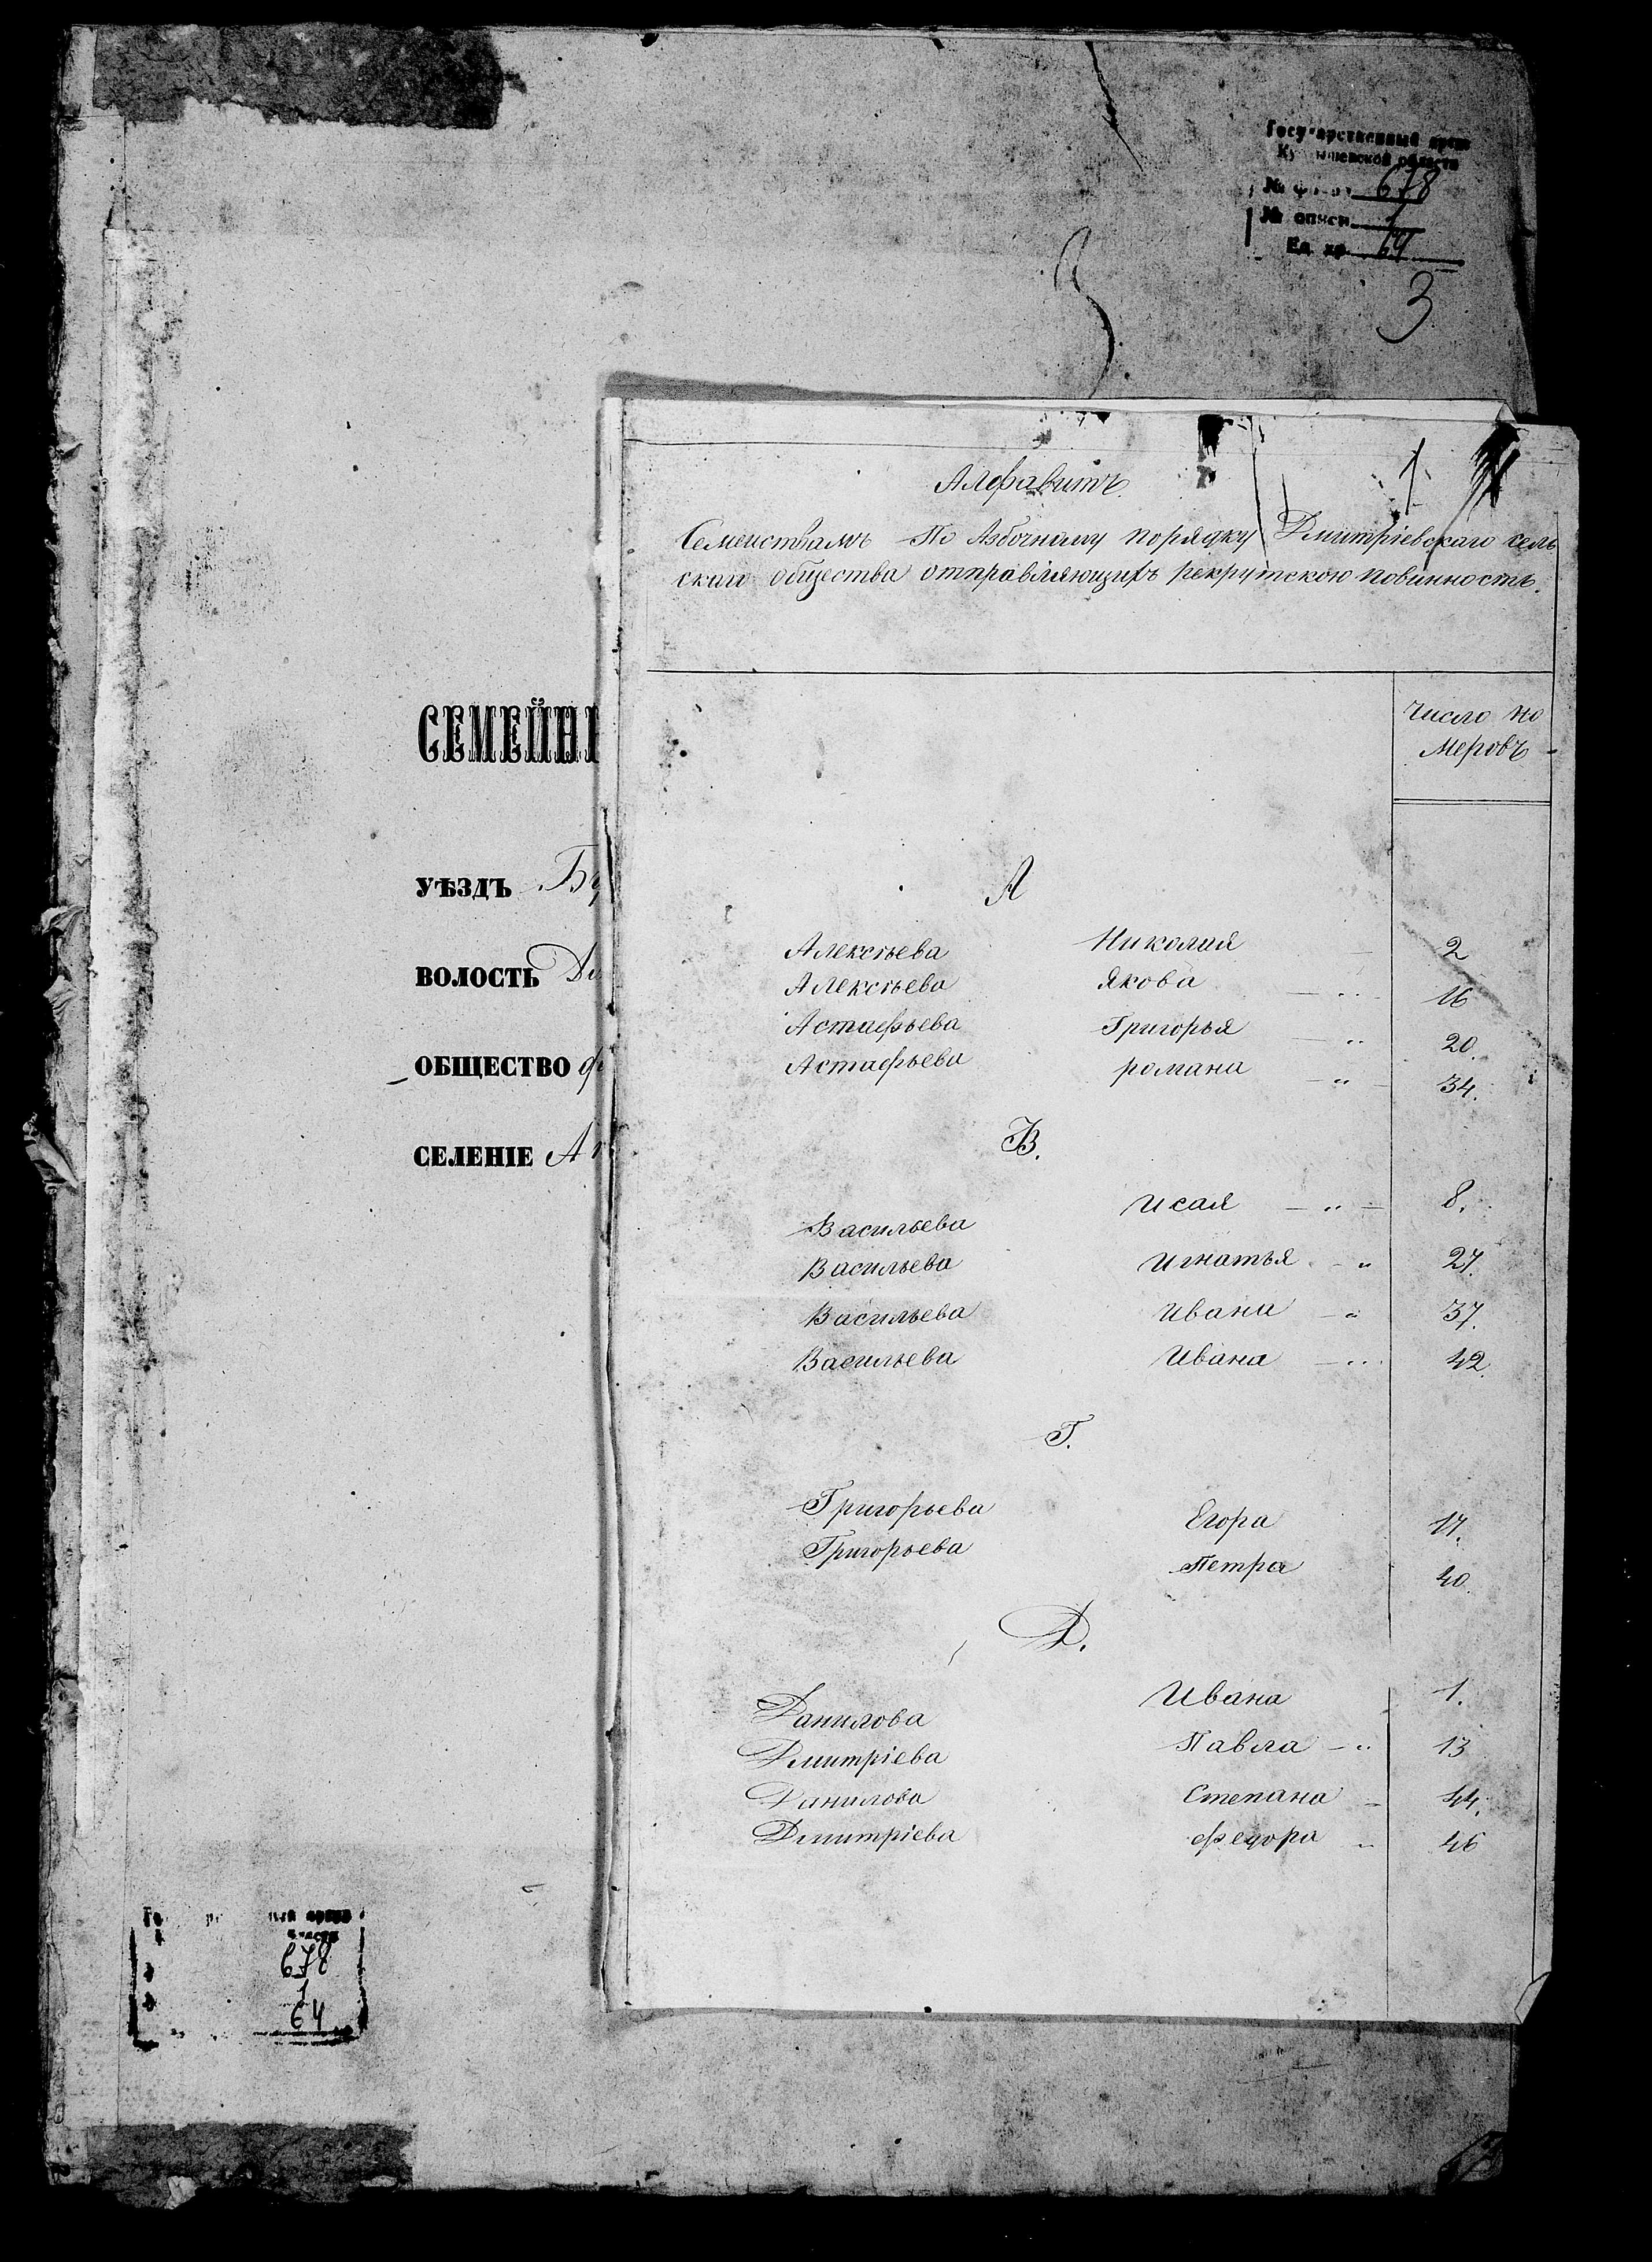 Государственный архив
Куйбышевской области
№ фонда 678
№ описи 1
Ед. хр. 64
3
3
1
Алфавитъ
Семействамъ По Азбочному порядку Дмитріевскаго сель
скаго общества отправляющихъ рекрутскою повинность.
Число но
меровъ
А
Алексѣева Николая 2
Алексѣева Якова 16
Астафьева Григорья 20.
Астафьева романа 34.
В.
Васильева Исая 8.
Васильева Игнатья 27.
Васильева Ивана 37.
Васильева Ивана 42.
Г.
Григорьева Егора 17.
Григорьева Петра 40.
Д.
Данилова Ивана 1.
Дмитріева Павла 13
Данилова Степана 44.
Дмитріева Федора 46
СЕМЕЙН
УѢЗДЪ Бу
ВОЛОСТЬ
ОБЩЕСТВО
СЕЛЕНІЕ
678
1
64